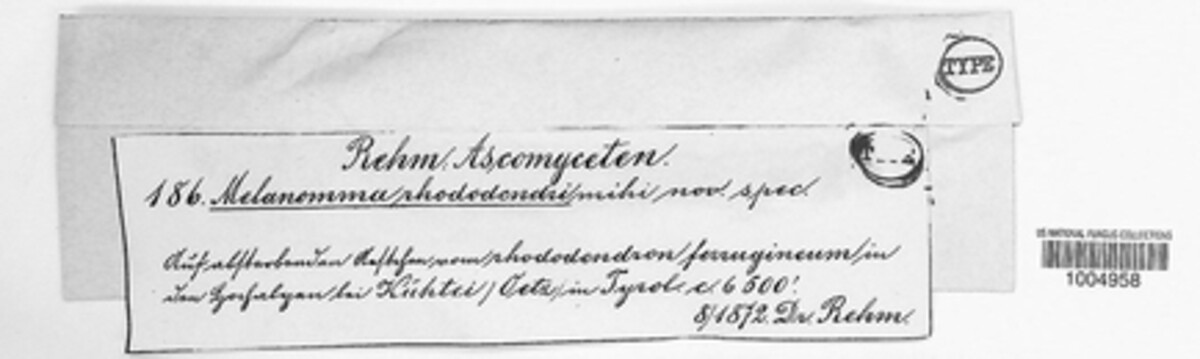 TYPE
Rehm. Ascomyceten.
186. Melanomma rhododendri mihi nov. spec.
Auf absterbenden Aestchen vom rhododendron ferrugineum in
den Hochalpen bei Kühtei / Oetz, in Tyrol. c. 6500'.
8/1872. Dr. Rehm.
US NATIONAL FUNGUS COLLECTIONS
1004958